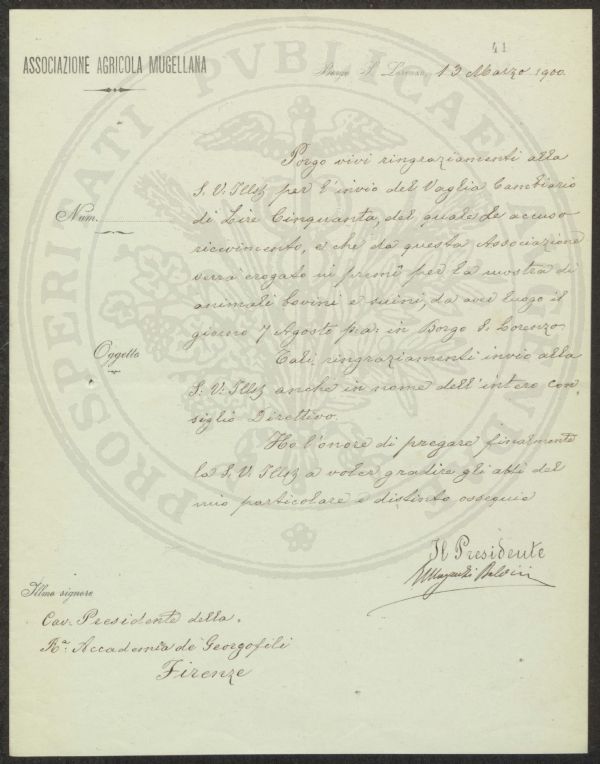 41
ASSOCIAZIONE AGRICOLA MUGELLANA
Borgo S. Lorenzo, 13 Marzo 1900
Porgo vivi ringraziamenti alla
S. V. Illma per l'invio del Vaglia Cambiario
Num.
di Lire Cinquanta, del quale Le accuso
ricevimento, e che da questa Associazione
verrà erogato in premî per la mostra di
animali bovini e suini, da aver luogo il
giorno 7 Agosto p.a: in Borgo S. Lorenzo.
Oggetto
Tali ringraziamenti invio alla
S. V. Illma anche in nome dell'intero con,
siglio Direttivo.
Ho l'onore di pregare finalmente
la S. V. Illma a voler gradire gli atti del
mio particolare e distinto ossequio
Il Presidente
Illmo signore
Cav. Presidente della
Ra. Accademia de Georgofili
Firenze
PROSPERITATI PVBLICAE AVGENDAE